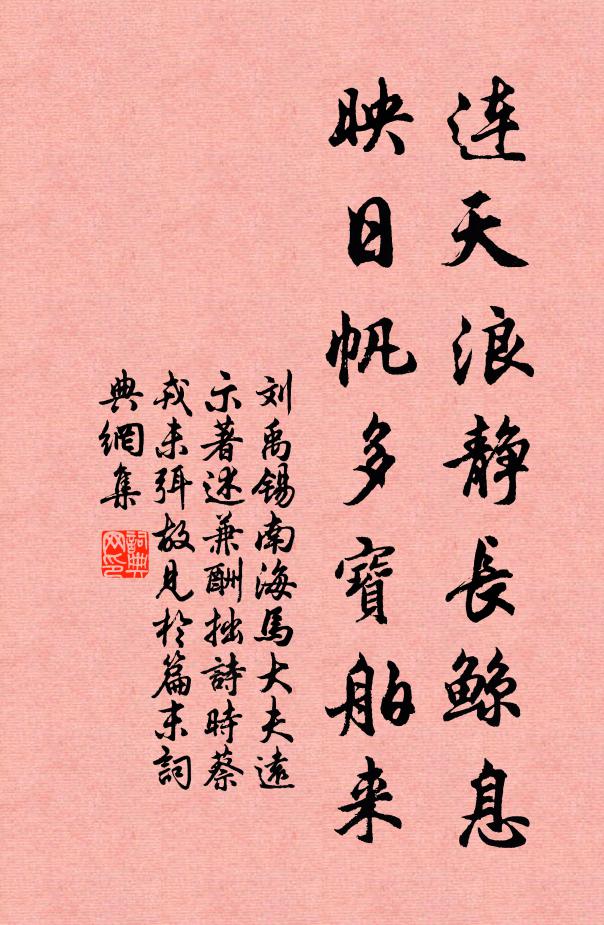 连天浪静長鲸息
映日帆多寶舶来
刘禹锡南海馬大夫遠
示著述兼酬拙詩時蔡
戎未弭故見於篇末詞
典網集
詞典
网印